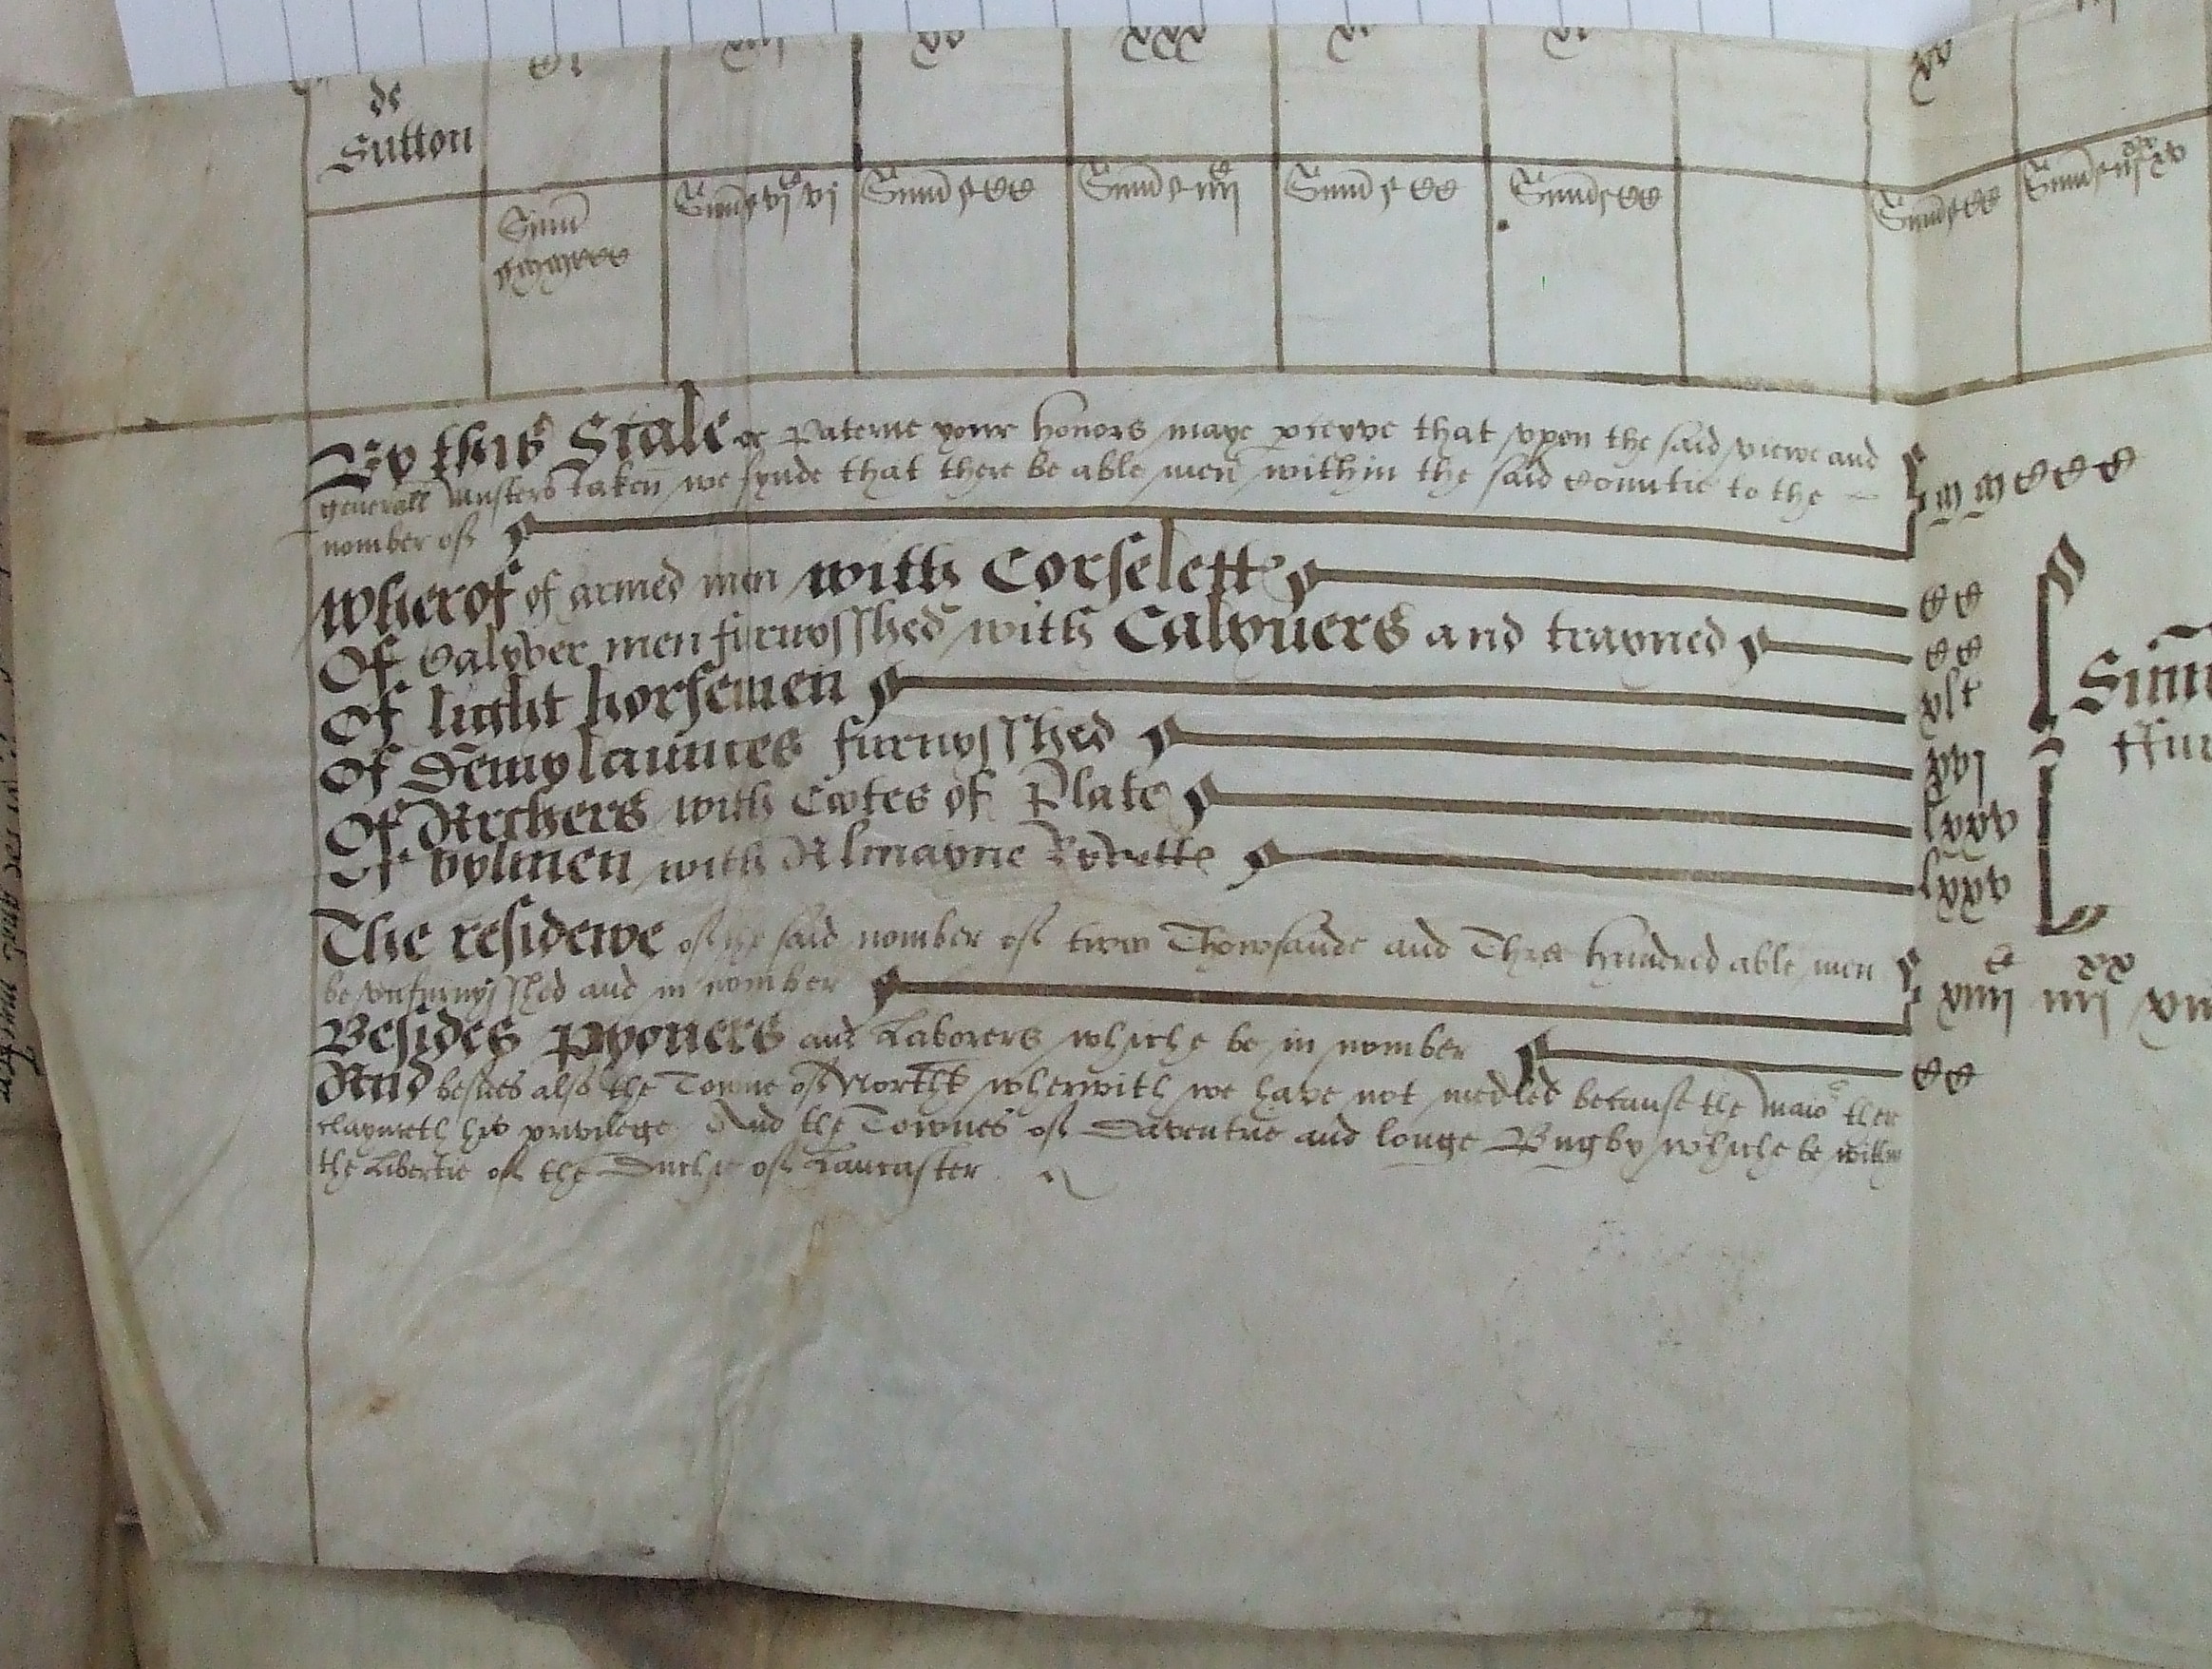 de
Sutton
xv
xxx
vi
vi
xv
Sum̄
Sum̄ vjᶜ vj
Sum̄ CC
Sum̄ iiijᶜ
Sum̄ CC
Sum̄ CC
Sum̄ CC
By this Scale or Paterne your honors maye p̲ceyve that vppon the said viewe and
generall Musters taken we fynde that there be able men within the said Countie to the
nomber of MMCCC
Wherof of armed men with Corselettes CC
Of Calyver men furnysshed with Calyuers and trayned CC
Of light horsemen xlt
Of Demylaunces furnysshed xvj
Of Archers with Cootes of Plate lxxv
Of bylmen with Almayne Ryvettes lxxv
Sum
ffur
The residewe of the said nomber of twoo Thowsande and Three hundred able men
be vnfurnysshed and in nomber xviiᶜ iiijˣˣ
Besides Pyoners and Laborers whiche be in nomber CC
And besides also the Towne of Northt wherwith we have not medled because the Maioʳ ther
claymeth his privilege And the Townes of Daventrie and longe Bugby whiche be within
the Libertie of the Duchie of Lancaster